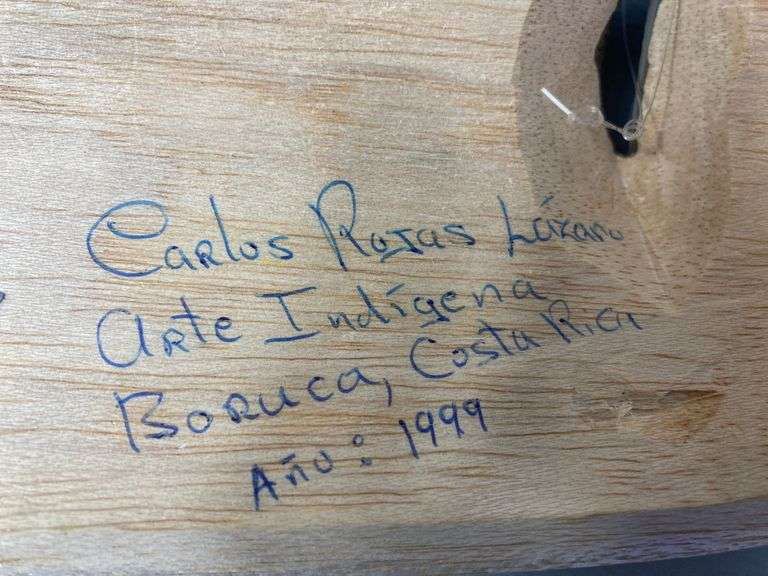 Carlos Rojas Lázaro
Arte Indígena
Boruca, Costa Rica
Año: 1999